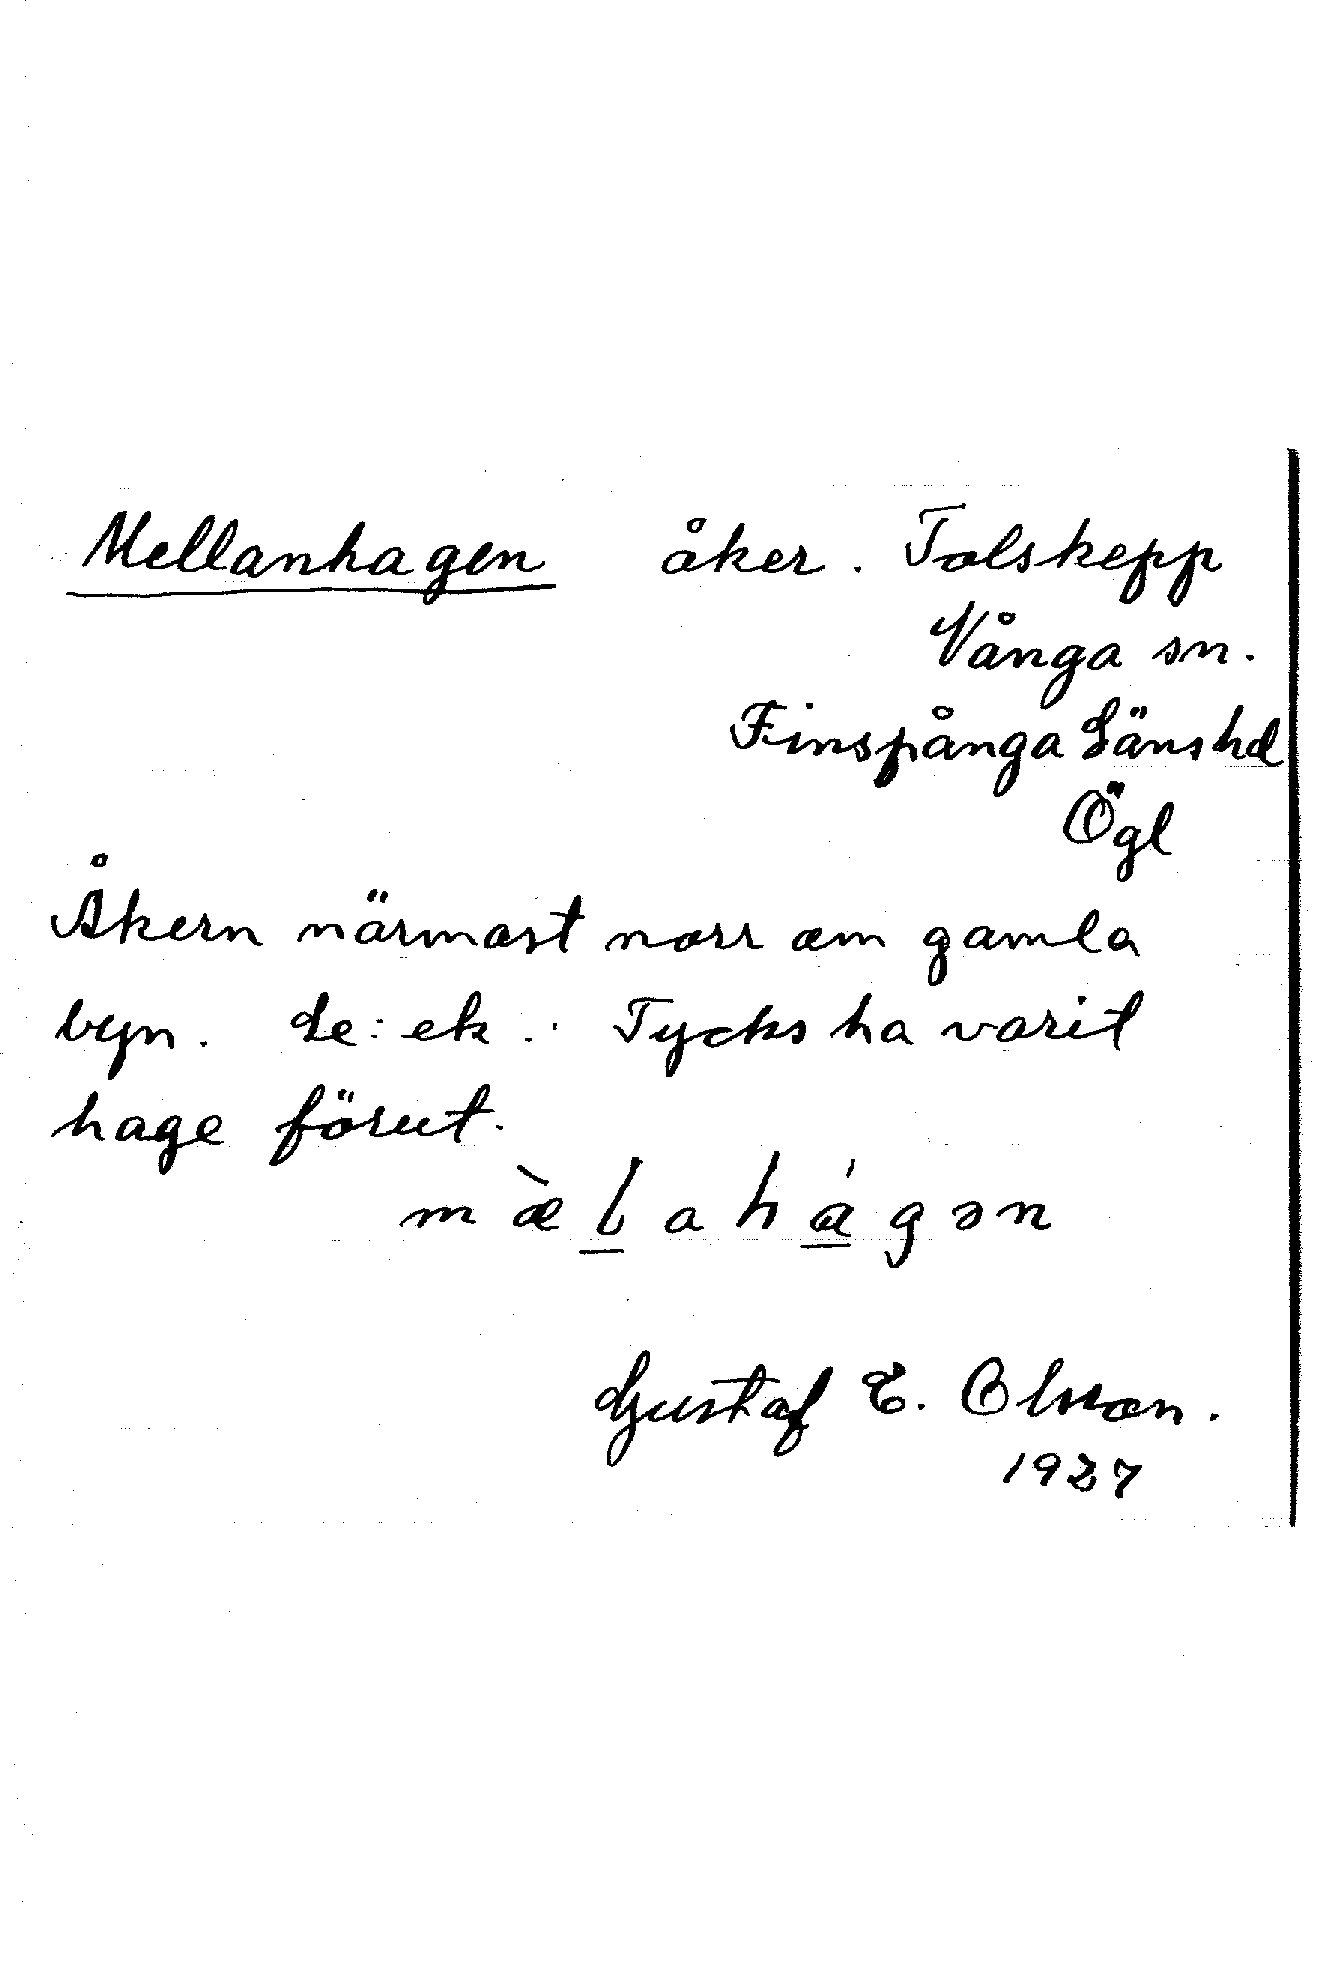 Mellanhagen åker. Tolskepp
Vånga sn.
Finspånga Länshd
Ögl
Åkern närmast norr om gamla
byn. Le: ek. Tycks ha varit
hage förut.
mæ̀l̲ahá̲gən
Gustaf E. Olsson.
1927